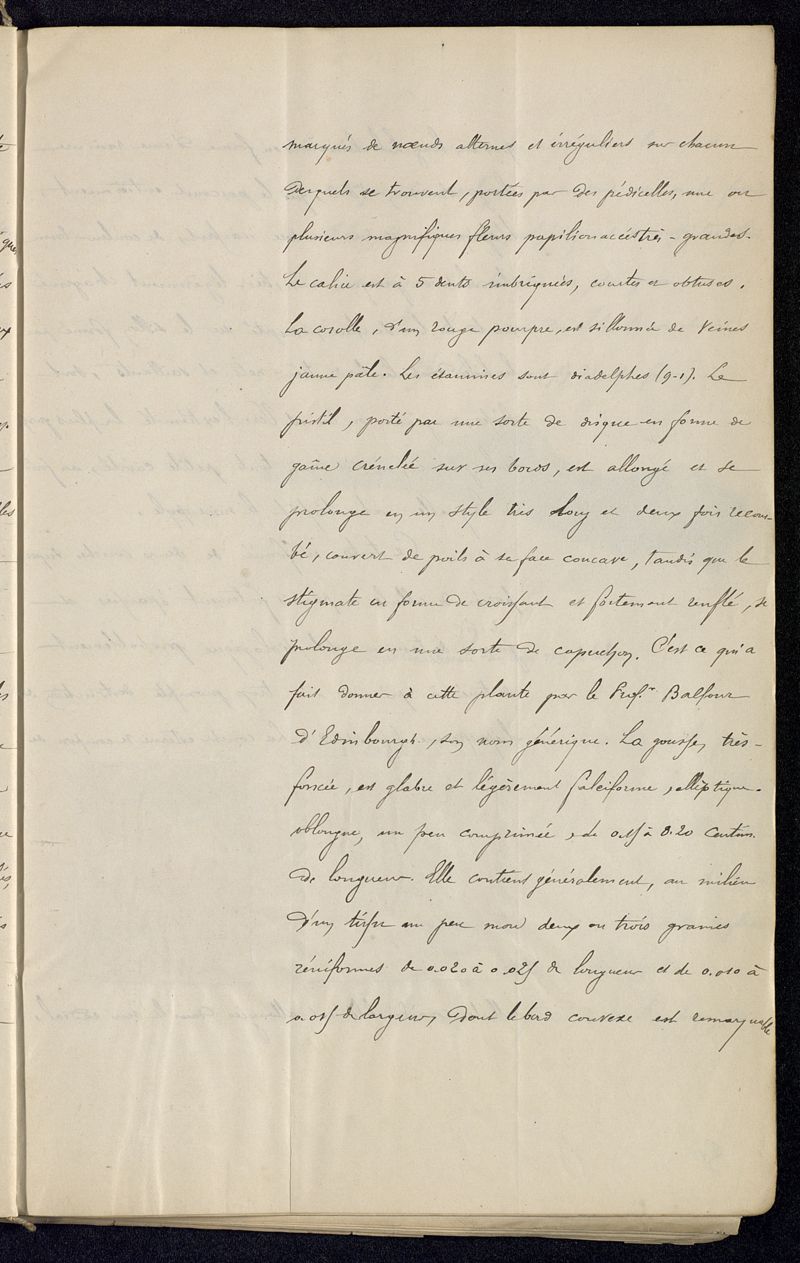 marqués de nœuds alternes et irréguliers sur chacun
desquels se trouvent, portées par des pédicelles, une ou
plusieurs magnifiques fleurs papilionaccés très-grandes.
Le calice est à 5 dents imbriquées, courtes et obtuses.
La corolle, d'un rouge pourpre, est sillonnée de veines
jaune pâle. Les étamines sont diadelphes (9-1). Le
pistil, porté par une sorte de disque en forme de
gaîne crénelée sur ses bords, est allongé et se
prolonge en un style très long et deux fois recour-
bé, couvert de poils à sa face concave, tandis que le
stigmate en forme de croissant et fortement renflé, se
prolonge en une sorte de capuchon. C'est ce qui a
fait donner à cette plante par le Prof.r Balfour
d'Edinbourgh, son nom générique. La gousse, très-
foncée, est glabre et légèrement falciforme, elliptique-
oblongue, un peu comprimée, de 0.15 à 0.20 centim.
de longueur. Elle contient généralement, au milieu
d'un tissu un peu mou deux ou trois graines
réniformes de 0.020 à 0.025 de longueur et de 0.010 à
0.015 de largeur, dont le bord convexe est remarquable